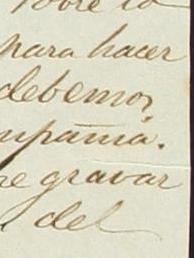 sobre lo
para hacer
debemos
mpañia.
re gravar
del